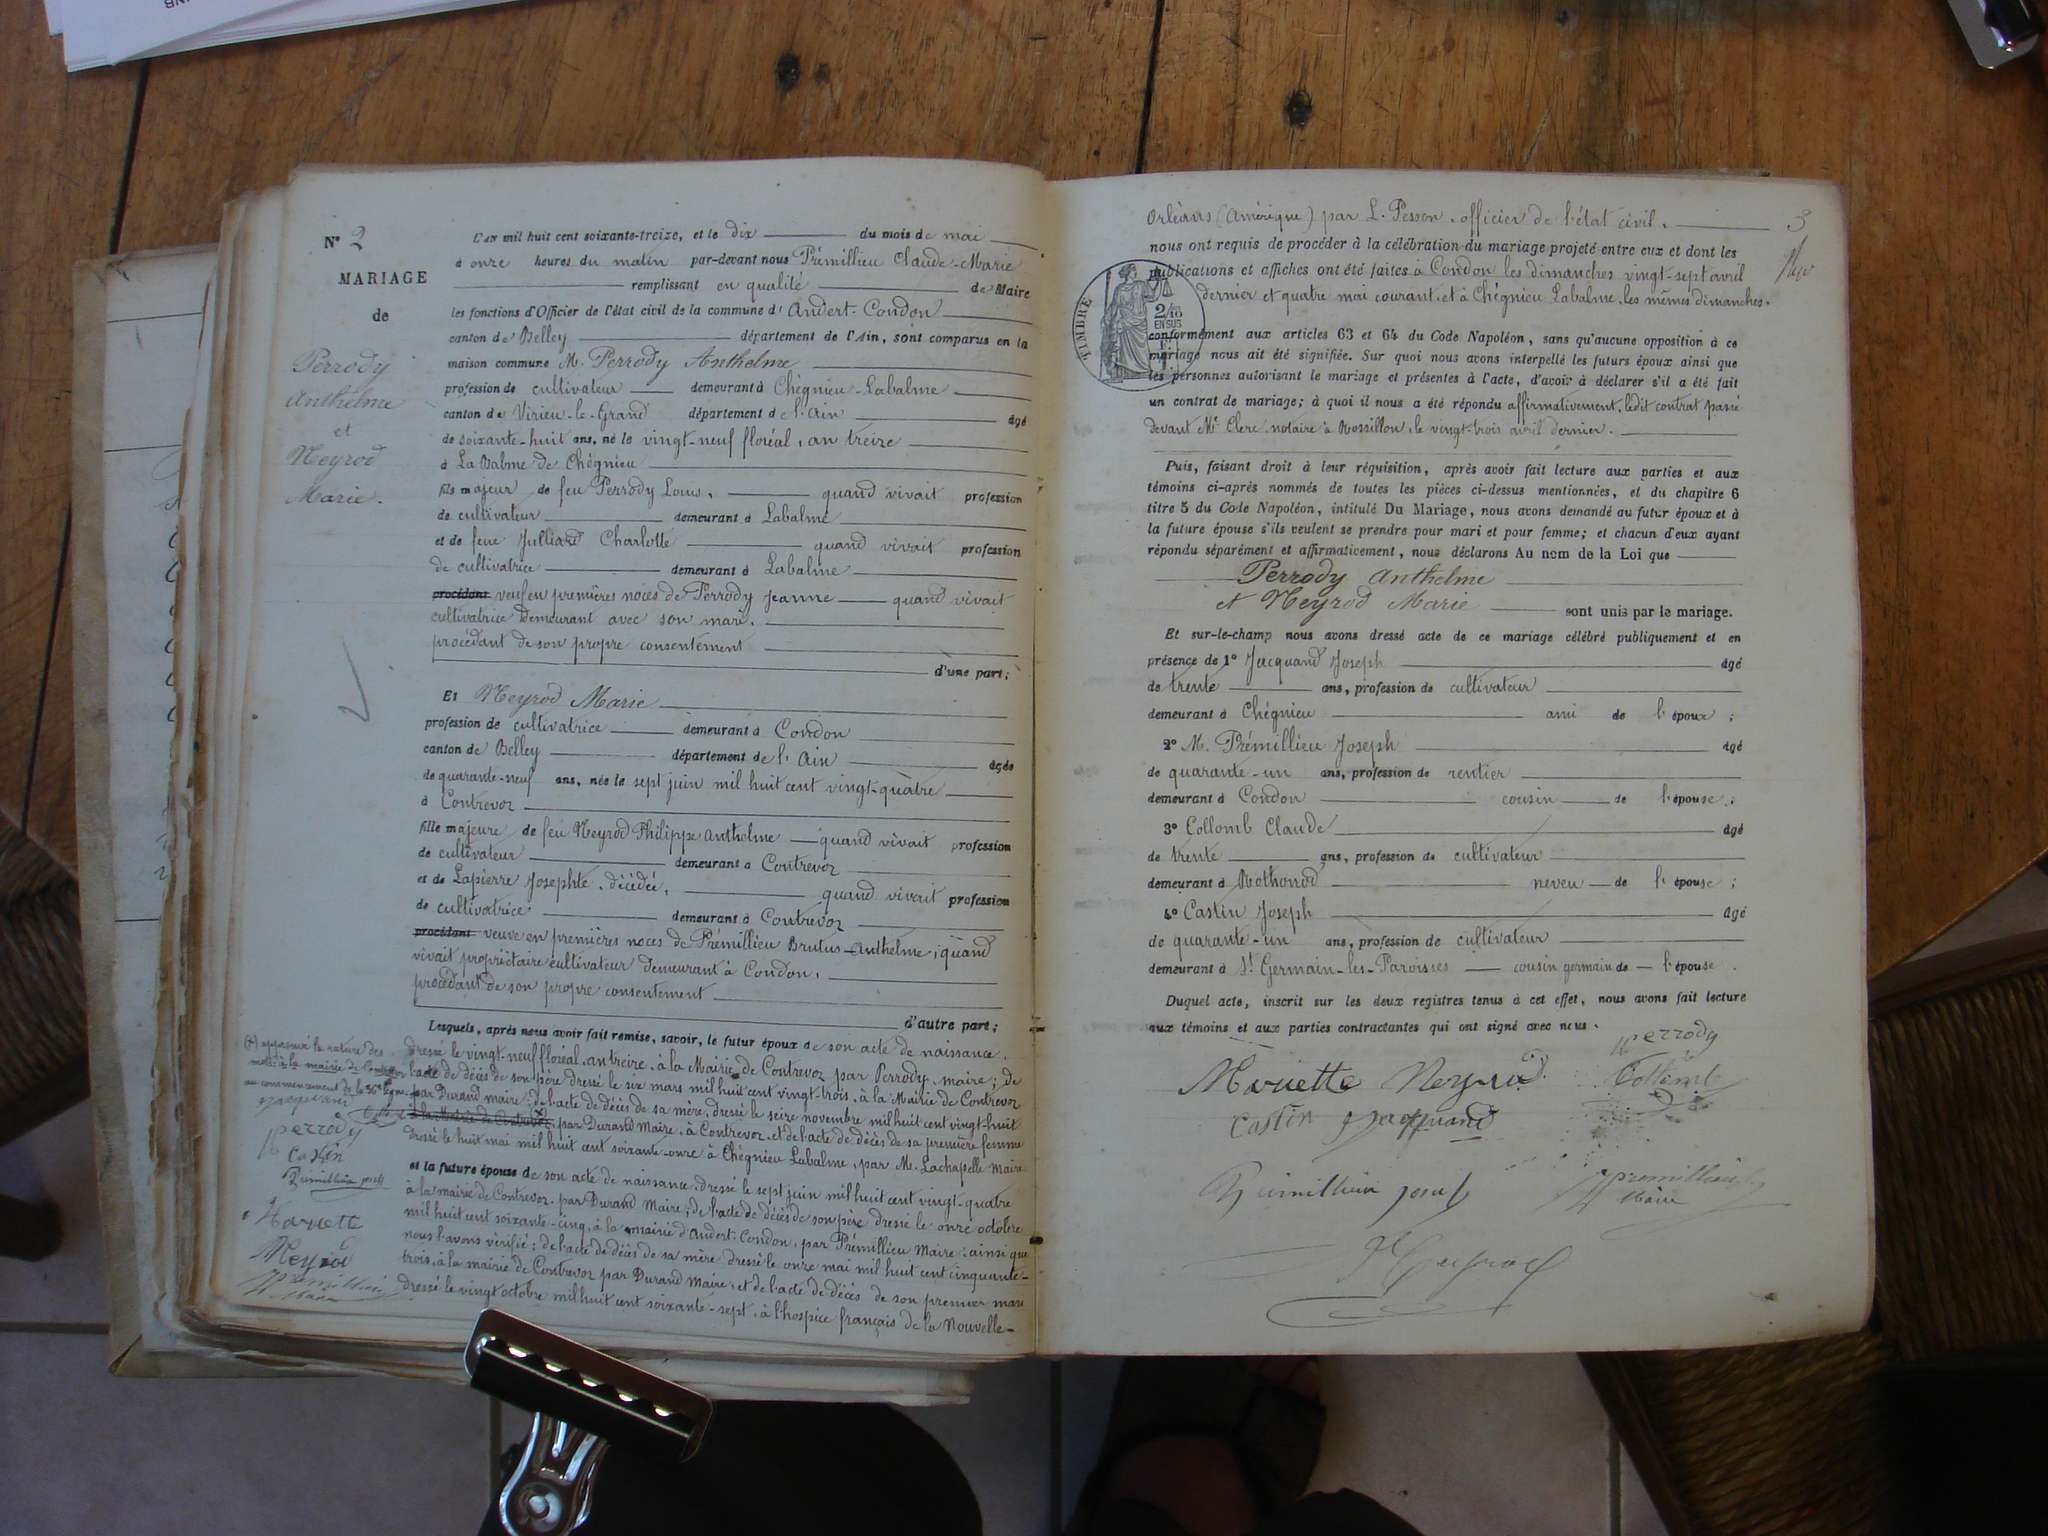 N° 2
MARIAGE
de
Perrody
Anthelme
et
Neyrod
Marie.
L'AN mil huit cent soixante-treize, et le dix du mois de mai
à onze heures du matin par-devant nous Prémillieu Claude-Marie
remplissant en qualité de Maire
les fonctions d'Officier de l'état civil de la commune d'Andert-Condon
canton de Belley département de l'Ain, sont comparus en la
maison commune M. Perrody Anthelme
profession de cultivateur demeurant à Chégnieu-Labalme
canton de Virieu-le-Grand département de l'Ain âgé
de soixante-huit ans, né le vingt-neuf floréal, an treize
à La Balme de Chégnieu
fils majeur de feu Perrody Louis, quand vivait profession
de cultivateur demeurant à Labalme
et de feue Julliard Charlotte quand vivait profession
de cultivatrice demeurant à Labalme
procédant veuf en premières noces de Perrody Jeanne quand vivait
cultivatrice demeurant avec son mari.
procédant de son propre consentement
d'une part;
Et Neyrod Marie
profession de cultivatrice demeurant à Condon
canton de Belley département de l'Ain âgée
de quarante-neuf ans, née le sept juin mil huit cent vingt-quatre
à Contrevoz
fille majeure de feu Neyrod Philippe Anthelme quand vivait profession
de cultivateur demeurant à Contrevoz
et de Lapierre Josephte, décédée, quand vivait profession
de cultivatrice demeurant à Contrevoz
procédant veuve en premières noces de Prémillieu Brutus-Anthelme, quand
vivait propriétaire cultivateur demeurant à Condon,
procédant de son propre consentement
d'autre part;
Lesquels, après nous avoir fait remise, savoir, le futur époux de son acte de naissance,
dressé le vingt-neuf floréal, an treize, à la Mairie de Contrevoz par Perrody, maire; de
l'acte de décès de son père dressé le six mars mil huit cent vingt-trois, à la Mairie de Contrevoz
par Durand maire; de l'acte de décès de sa mère, dressé le seize novembre mil huit cent vingt-huit
à la Mairie de Contrevoz, par Durand Maire, à Contrevoz, et de l'acte de décès de sa première femme
dressé le huit mai mil huit cent soixante-onze à Chégnieu Labalme, par M. Lachapelle Maire
et la future épouse de son acte de naissance, dressé le sept juin mil huit cent vingt-quatre
à la mairie de Contrevoz, par Durand Maire; de l'acte de décès de son père dressé le onze octobre
mil huit cent soixante-cinq, à la mairie d'Andert-Condon, par Prémillieu Maire, ainsi que
nous l'avons vérifié; de l'acte de décès de sa mère dressé le onze mai mil huit cent cinquante-
trois, à la mairie de Contrevoz par Durand Maire; et de l'acte de décès de son premier mari
dressé le vingt octobre mil huit cent soixante-sept, à l'hospice français de la Nouvelle-
la rature des
mots à la mairie de Contrevoz
au commencement de la 36e ligne.
Jacquand
Perrody
Castin
Prémillieu joseph
Mariette
Neyrod
Prémillieu
Maire
3
Orléans (Amérique) par L. Pesson, officier de l'état civil.
nous ont requis de procéder à la célébration du mariage projeté entre eux et dont les
publications et affiches ont été faites à Condon les dimanches vingt-sept avril
dernier et quatre mai courant, et à Chégnieu Labalme, les mêmes dimanches.
TIMBRE
2/10
EN SUS
conformément aux articles 63 et 64 du Code Napoléon, sans qu'aucune opposition à ce
mariage nous ait été signifiée. Sur quoi nous avons interpellé les futurs époux ainsi que
les personnes autorisant le mariage et présentes à l'acte, d'avoir à déclarer s'il a été fait
un contrat de mariage; à quoi il nous a été répondu affirmativement, ledit contrat passé
devant Me Clerc notaire à Rossillon, le vingt-trois avril dernier.
Puis, faisant droit à leur réquisition, après avoir fait lecture aux parties et aux
témoins ci-après nommés de toutes les pièces ci-dessus mentionnées, et du chapitre 6
titre 5 du Code Napoléon, intitulé Du Mariage, nous avons demandé au futur époux et à
la future épouse s'ils veulent se prendre pour mari et pour femme; et chacun d'eux ayant
répondu séparément et affirmativement, nous déclarons Au nom de la Loi que
Perrody Anthelme
et Neyrod Marie sont unis par le mariage.
Et sur-le-champ nous avons dressé acte de ce mariage célébré publiquement et en
présence de 1° Jacquand Joseph âgé
de trente ans, profession de cultivateur
demeurant à Chégnieu ami de l'époux;
2° M. Prémillieu Joseph âgé
de quarante-un ans, profession de rentier
demeurant à Condon cousin de l'épouse;
3° Collomb Claude âgé
de trente ans, profession de cultivateur
demeurant à Rothonod neveu de l'épouse;
4° Castin Joseph âgé
de quarante-un ans, profession de cultivateur
demeurant à St Germain-les-Paroisses cousin germain de l'épouse.
Duquel acte, inscrit sur les deux registres tenus à cet effet, nous avons fait lecture
aux témoins et aux parties contractantes qui ont signé avec nous.
Perrody
Mariette Neyrod
Collomb
Castin Jacquand
Prémillieu joseph
Prémillieu
Maire